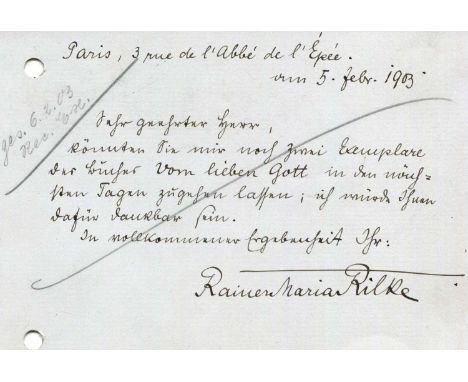 Paris, 3 rue de l'Abbé de l'Épée.
am 5. febr. 1903.
ges. 6.2.03
Sehr geehrter Herr,
könnten Sie mir noch zwei Exemplare
des Buches Vom lieben Gott in den näch-
sten Tagen zugehen lassen; ich würde Ihnen
dafür dankbar sein.
In vollkommener Ergebenheit Ihr:
Rainer Maria Rilke